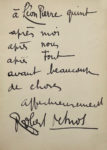 à Léon Pierre Quint
après moi
après nous
après tout
avant beaucoup
de choses
affectueusement
Robert Desnos